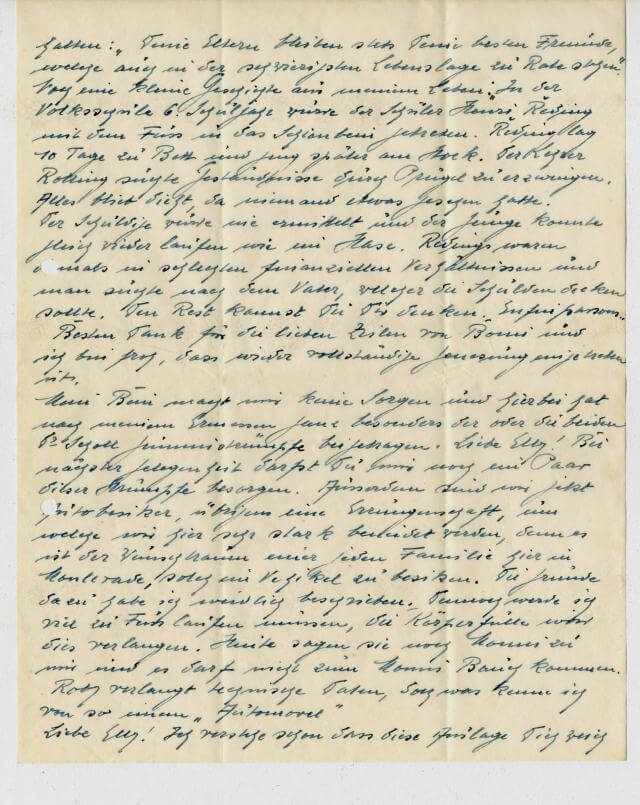 halten: „Deine Eltern bleiben stets Deine besten Freunde,
welche auch in der schwierigsten Lebenslage zu Rate stehen."
Noch eine kleine Geschichte aus meinem Leben: In der
Volksschule 6. Schuljahr wurde der Schüler Hansi Reding
mit dem Fuss in das Schienbein getreten. Reding lag
10 Tage zu Bett und ging später am Stock. Der Lehrer
Rolling suchte Geständnisse durch Prügel zu erzwingen.
Alles blieb dicht, da niemand etwas gesehen hatte.
Der Schuldige wurde nie ermittelt und der Junge konnte
gleich wieder laufen wie ein Hase. Redings waren
damals in schlechten finanziellen Verhältnissen und
man suchte nach dem Vater, welcher die Schulden decken
sollte. Den Rest kannst Du Dir denken.
Besten Dank für die lieben Zeilen von Bomi und
ich bin froh, dass wieder vollständige Genesung eingetreten
ist.
Mein Bein macht mir keine Sorgen und hierbei hat
nach meinem Ermessen ganz besonders der oder die beiden
Dr Scholl Gummistrümpfe beigetragen. Liebe Elly! Bei
nächster Gelegenheit darfst Du mir noch ein Paar
dieser Strümpfe besorgen. Ausserdem sind wir jetzt
Autobesitzer, übrigens eine Errungenschaft, um
welche wir hier sehr stark beneidet werden, denn es
ist der Wunschtraum einer jeden Familie hier in
Monlevade, solch ein Vehikel zu besitzen. Die Gründe
dazu habe ich weidlich beschrieben. Dennoch werde ich
viel zu Fuss laufen müssen, die Körperfülle wird
dies verlangen. Heute sagen sie noch Monni zu
mir und es darf nicht zum Monni Bauch kommen.
Roby verlangt technische Daten, doch was kann ich
von so einem „Automovel"
Liebe Elly! Ich verstehe schon dass diese Auslage Dich reich